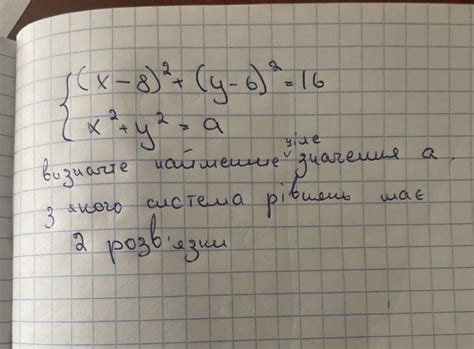 (x-8)²+(y-6)²=16
x²+y²=a
визначте найменше ціле значення a,
з якого система рівнянь має
2 розв'язки